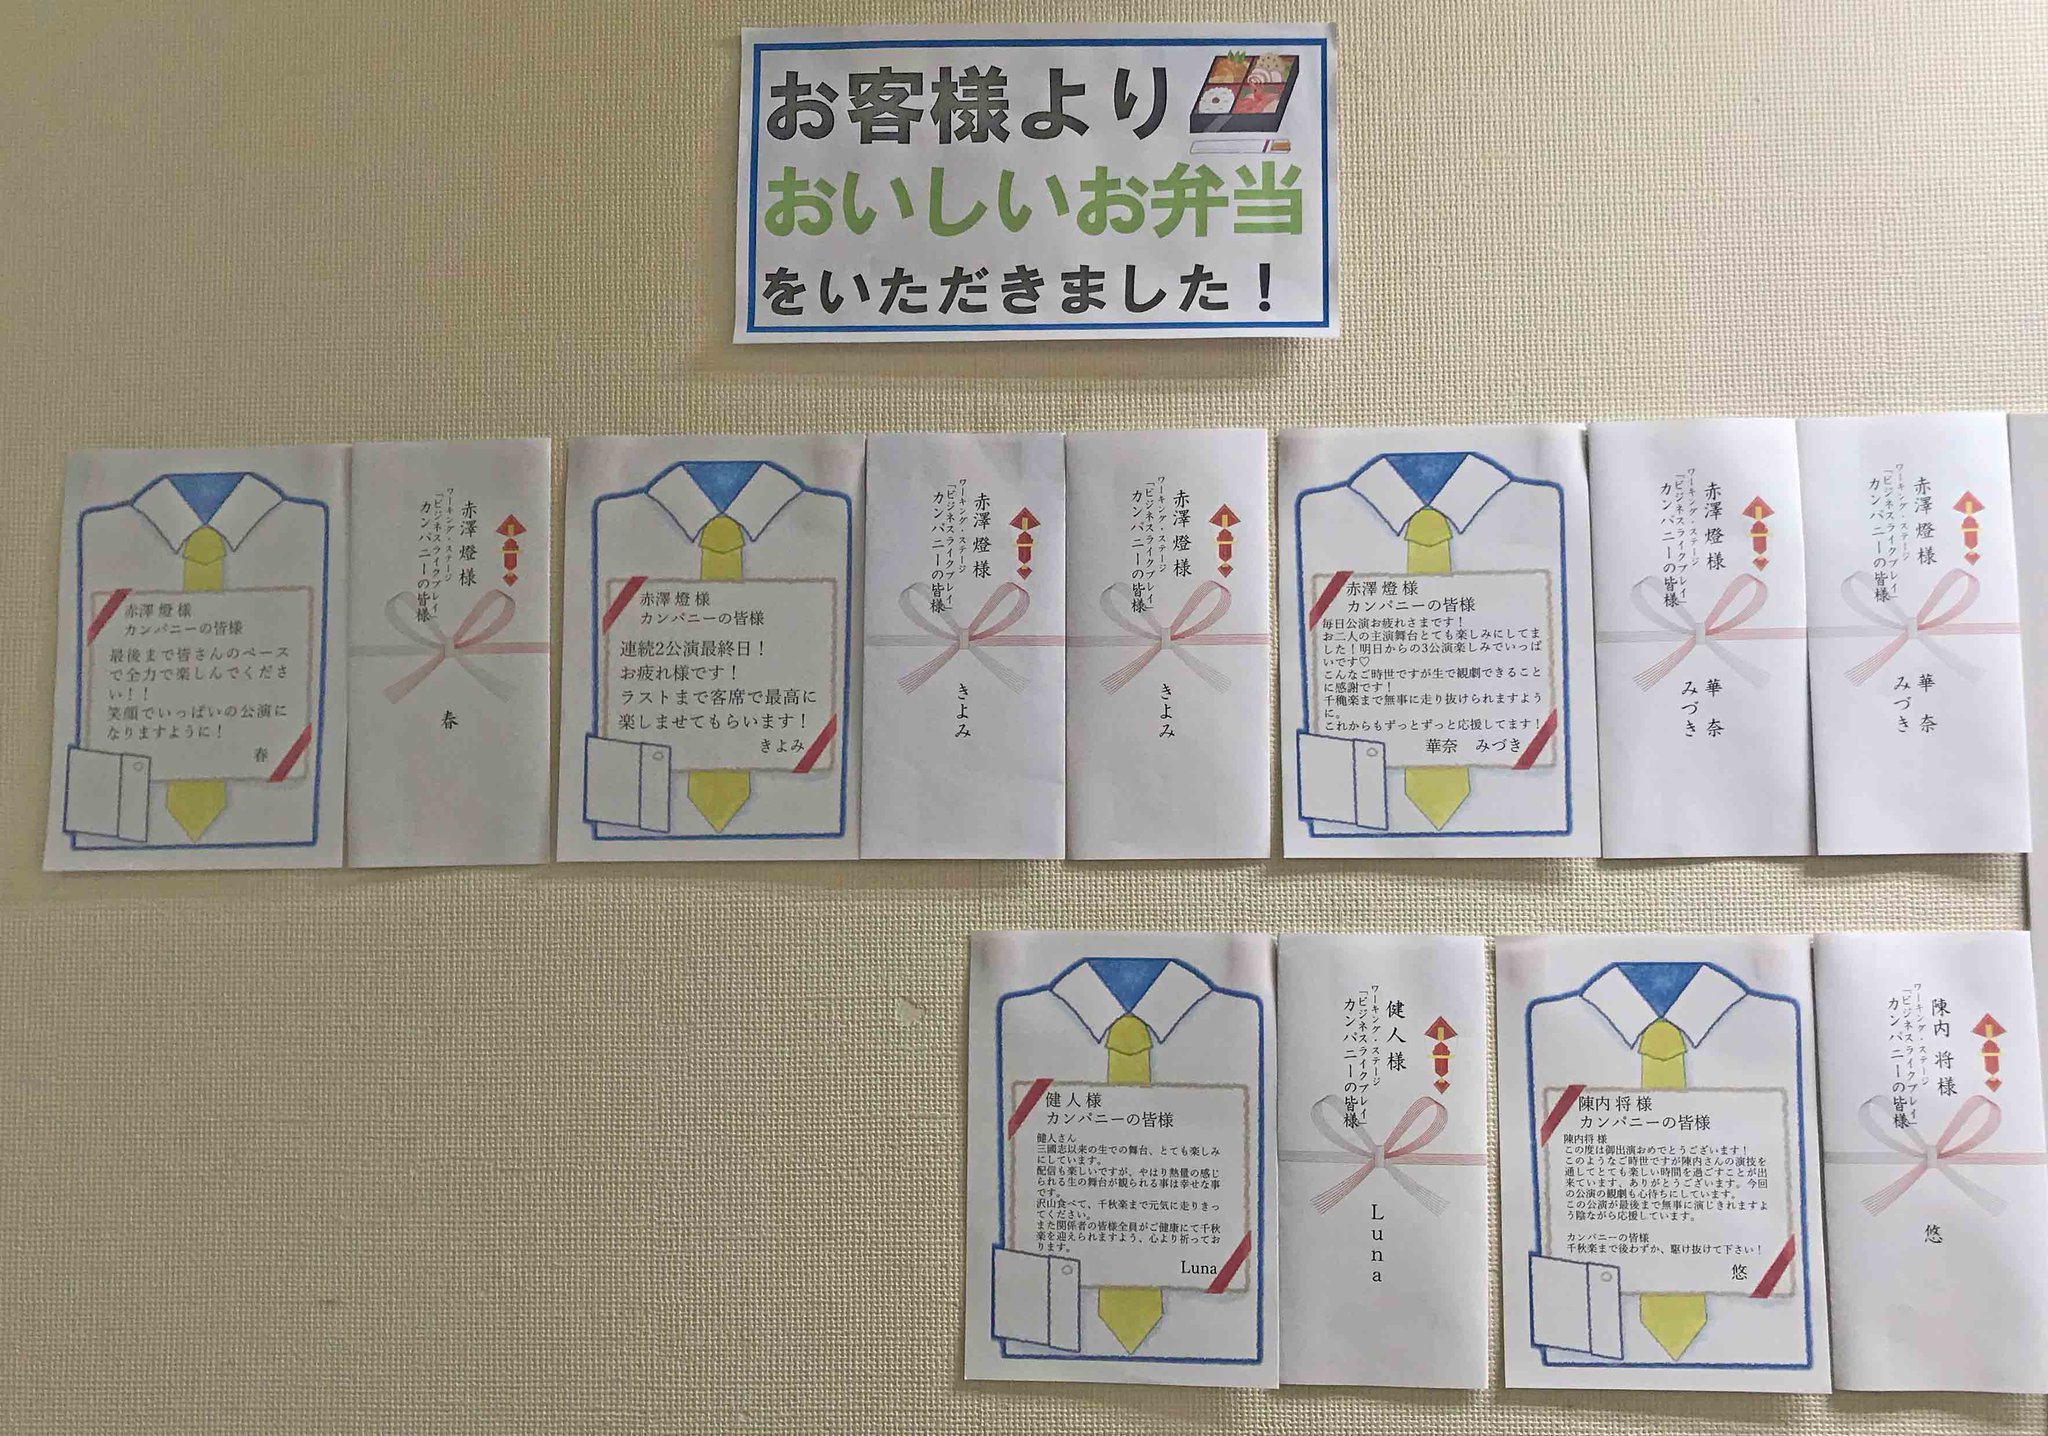 お客様より
おいしいお弁当
をいただきました！
赤澤 燈 様
カンパニーの皆様
最後まで皆さんのペース
で全力で楽しんでくださ
い！！
笑顔でいっぱいの公演に
なりますように！
春
赤澤 燈 様
ワーキング・ステージ
「ビジネスライクプレイ」
カンパニーの皆様
春
赤澤 燈 様
カンパニーの皆様
連続2公演最終日！
お疲れ様です！
ラストまで客席で最高に
楽しませてもらいます！
きよみ
赤澤 燈 様
ワーキング・ステージ
「ビジネスライクプレイ」
カンパニーの皆様
きよみ
赤澤 燈 様
ワーキング・ステージ
「ビジネスライクプレイ」
カンパニーの皆様
きよみ
赤澤 燈 様
カンパニーの皆様
毎日公演お疲れさまです！
お二人の主演舞台とても楽しみにしてま
した！明日からの3公演楽しみでいっぱ
いです♡
こんなご時世ですが生で観劇できること
に感謝です！
千穐楽まで無事に走り抜けられますよう
に。
これからもずっとずっと応援してます！
華奈 みづき
赤澤 燈 様
ワーキング・ステージ
「ビジネスライクプレイ」
カンパニーの皆様
華 奈
みづき
赤澤 燈 様
ワーキング・ステージ
「ビジネスライクプレイ」
カンパニーの皆様
華 奈
みづき
健 人 様
カンパニーの皆様
健人さん
三國志以来の生での舞台、とても楽しみ
にしています。
配信も楽しいですが、やはり熱量の感じ
られる生の舞台が観られる事は幸せな事
です。
沢山食べて、千秋楽まで元気に走りきっ
てください。
また関係者の皆様全員がご健康にて千秋
楽を迎えられますよう、心より祈ってお
ります。
Luna
健 人 様
ワーキング・ステージ
「ビジネスライクプレイ」
カンパニーの皆様
Luna
陳内 将 様
カンパニーの皆様
陳内将 様
この度は御出演おめでとうございます！
このようなご時世ですが陳内さんの演技を
通してとても楽しい時間を過ごすことが出
来ています、ありがとうございます。今回
の公演の観劇も心待ちにしています。
この公演が最後まで無事に演じきれますよ
う陰ながら応援しています。
カンパニーの皆様
千秋楽まで後わずか、駆け抜けて下さい！
悠
陳内 将 様
ワーキング・ステージ
「ビジネスライクプレイ」
カンパニーの皆様
悠